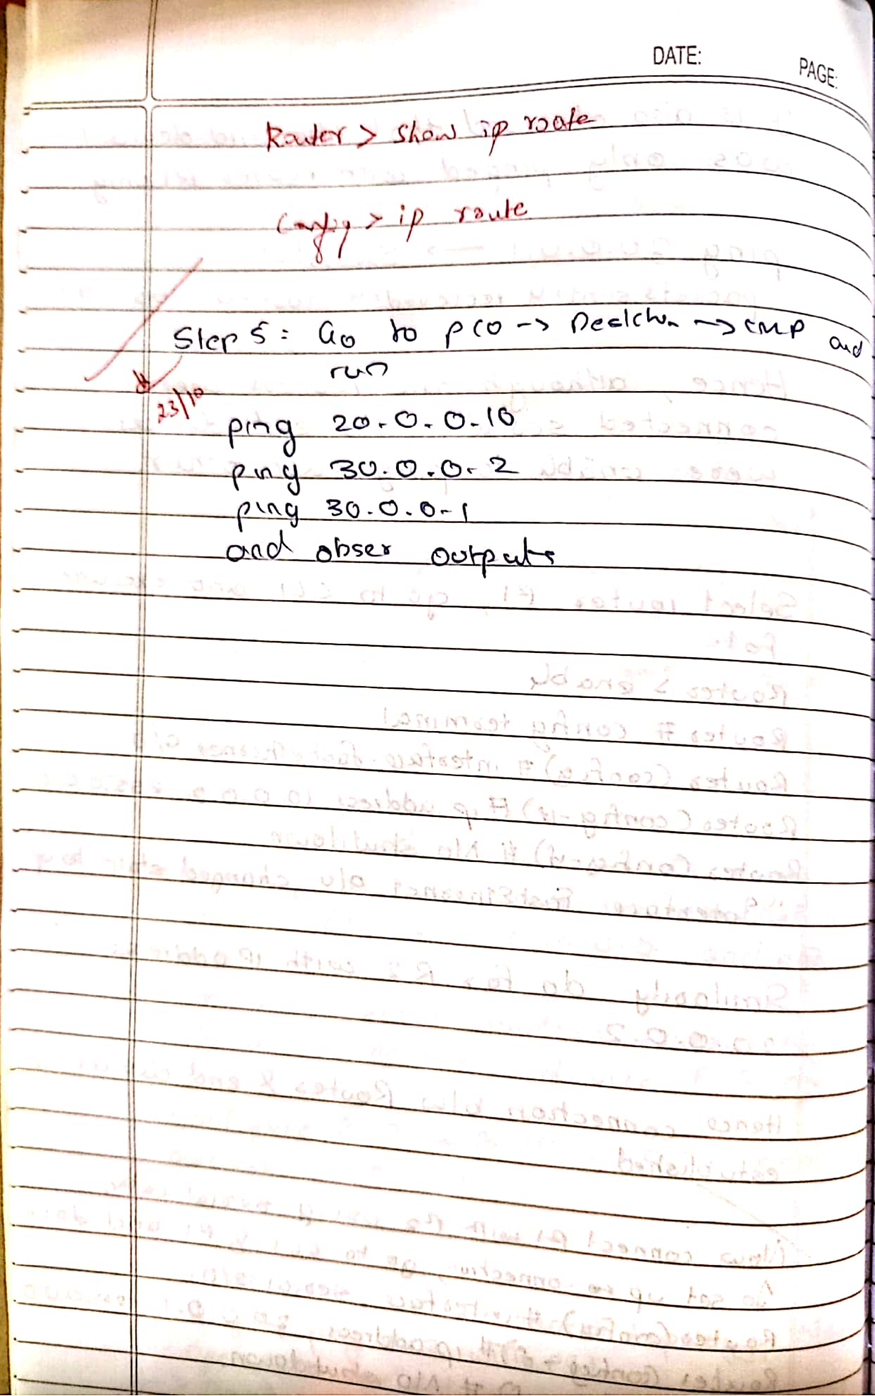 DATE:
PAGE:
Router > show ip route
Config > ip route
Step 5: Go to PC0 -> Desktop -> CMP and
run
23/10
ping 20.0.0.10
ping 30.0.0.2
ping 30.0.0.1
and obser outputs